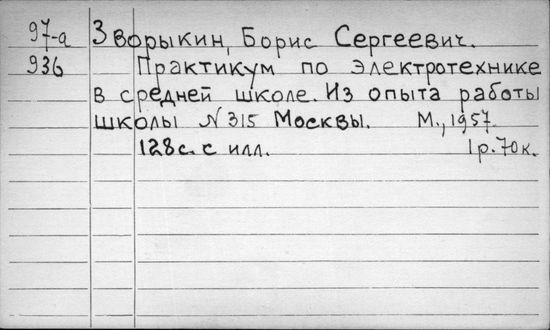 97-а Зворыкин, Борис Сергеевич.
936 Практикум по электротехнике
в средней школе. Из опыта работы
школы N 315 Москвы. М., 1957.
128 с. с илл. 1 р. 70 к.